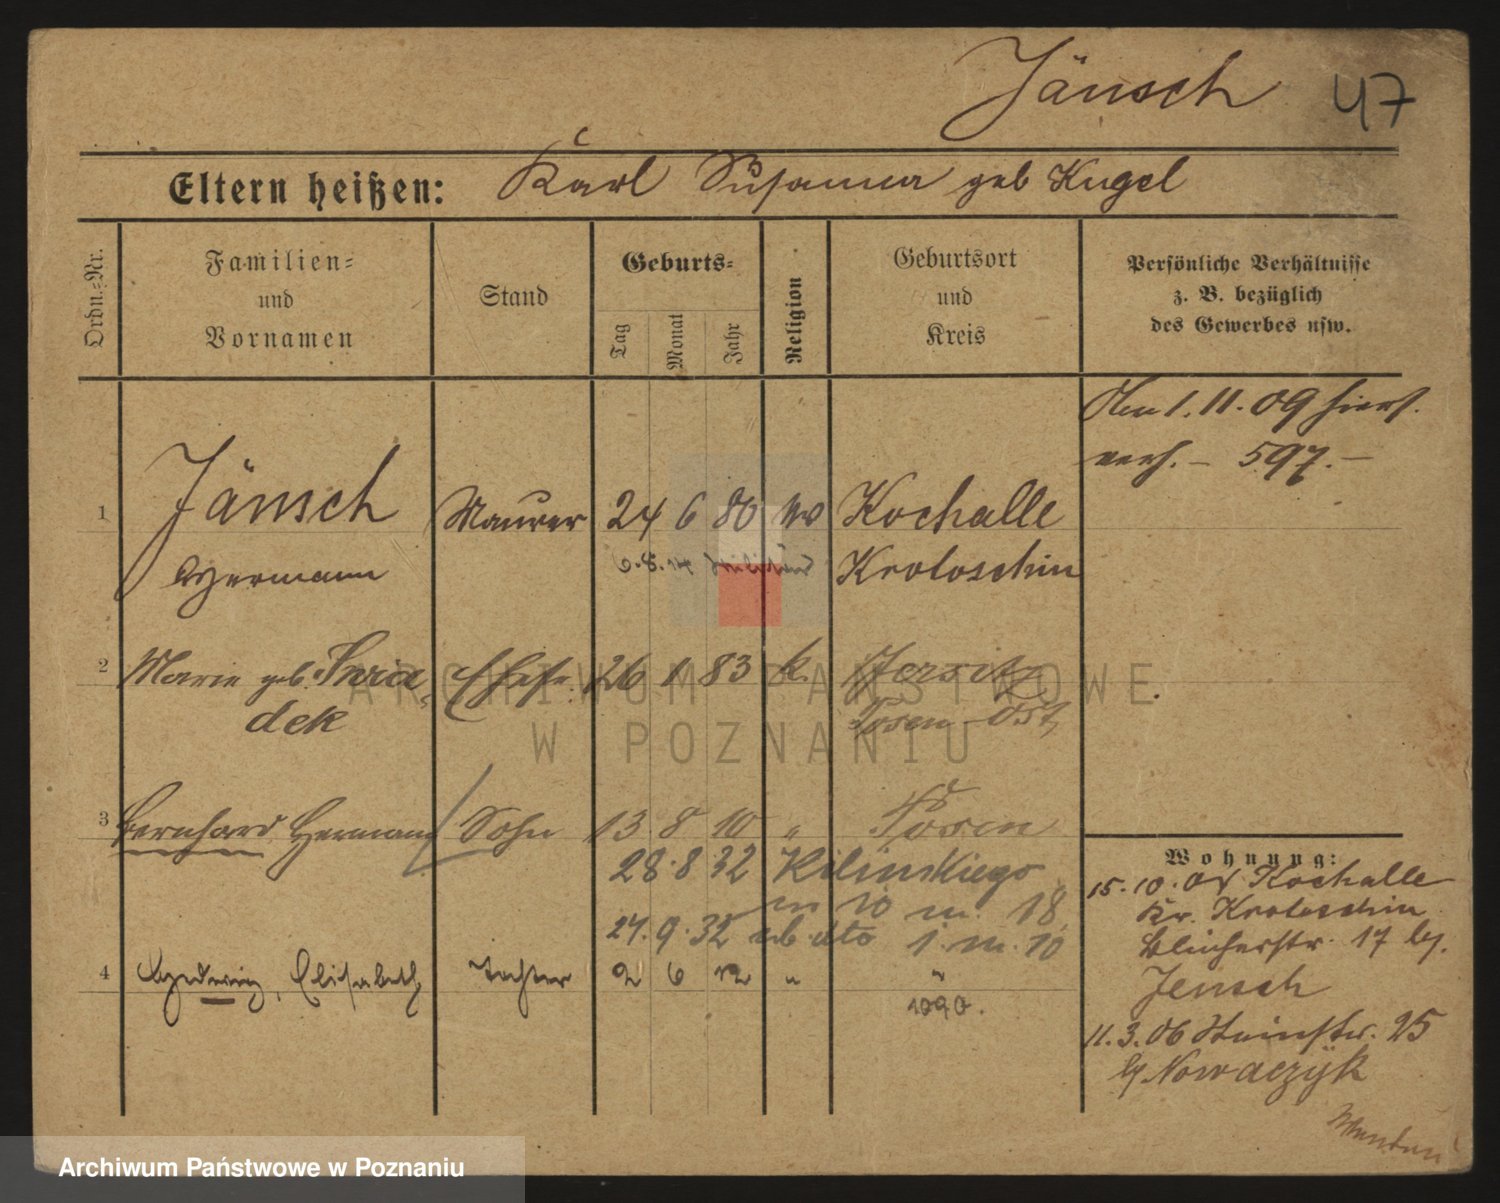 Jänsch 47
Eltern heißen: Karl Susanna geb Kugel
Ordn.-Nr.
Familien-
und
Vornamen
Stand
Geburts-
Tag
Monat
Jahr
Religion
Geburtsort
und
Kreis
Persönliche Verhältnisse
z. B. bezüglich
des Gewerbes usw.
Am 1.11.09 hiers.
verh. – 597. –
1 Jänsch Maurer 24 6 80 Kochalle
Hermann 6.8.14 Militär Krotoschin
2 Marie geb. Swia- Ehefr. 26 1 83 k. Jersitz
dek Posen Ost
3 Bernhard Hermann Sohn 13 8 10 " Posen
28.8.32 Kilinskiego
10 m. 18
27.9.32 dto 1. m. 10
4 Hedwig, Elisabeth Tochter 2 6 12 " "
1090.
Wohnung:
15.10.04 Kochalle
Kr. Krotoschin
Blücherstr. 17 by.
Jensch
11.3.06 Steinstr. 25
by Nowaczyk
Wenden
ARCHIWUM PAŃSTWOWE
W POZNANIU
Archiwum Państwowe w Poznaniu